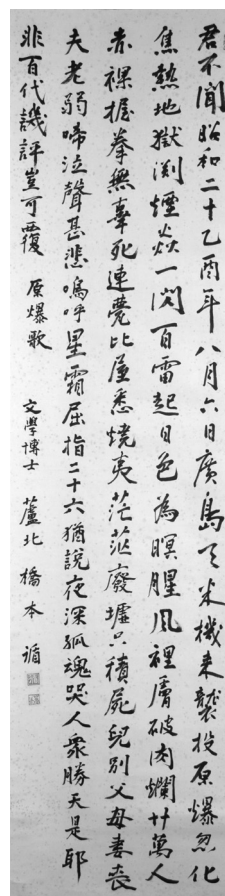 君不聞昭和二十乙酉年八月六日廣島天米機来襲投原爆忽化
焦熱地獄渕煙焱一閃百雷起日色為暝腥風裡膚破肉爛廿萬人
赤裸握拳無辜死連甍比屋悉燒夷茫茫廢墟只積屍兒別父母妻喪
夫老弱啼泣聲甚悲嗚呼星霜屈指二十六猶説夜深孤魂哭人衆勝天是耶
非百代譏評豈可覆 原爆歌 文學博士 蘆北 橋本 循